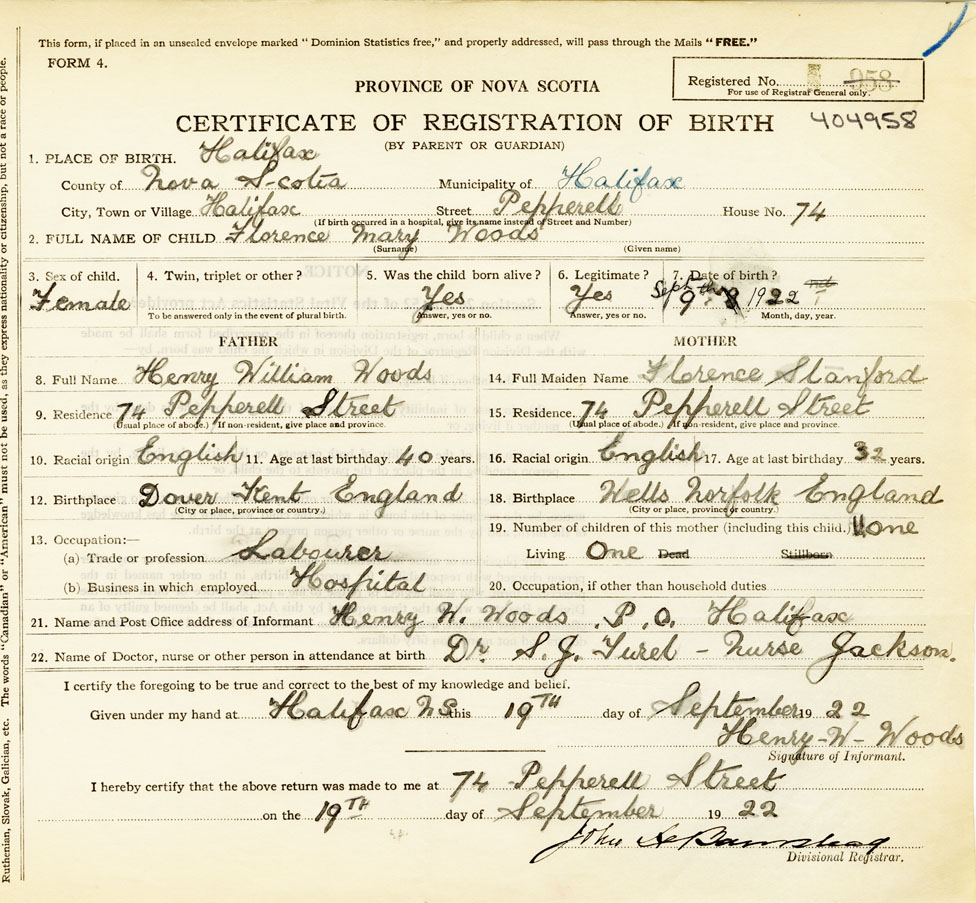 This form, if placed in an unsealed envelope marked "Dominion Statistics free," and properly addressed, will pass through the Mails "FREE."
FORM 4.
PROVINCE OF NOVA SCOTIA
Registered No. 958
For use of Registrar General only.
CERTIFICATE OF REGISTRATION OF BIRTH 404958
(BY PARENT OR GUARDIAN)
1. PLACE OF BIRTH. Halifax
County of Nova Scotia Municipality of Halifax
City, Town or Village Halifax Street Pepperell House No. 74
(If birth occurred in a hospital, give its name instead of Street and Number)
2. FULL NAME OF CHILD Florence Mary Woods
(Surname) (Given name)
3. Sex of child. 4. Twin, triplet or other? 5. Was the child born alive? 6. Legitimate? 7. Date of birth?
Female Yes Yes Sept 9th 1922
To be answered only in the event of plural birth. Answer, yes or no. Answer, yes or no. Month, day, year.
FATHER MOTHER
8. Full Name Henry William Woods 14. Full Maiden Name Florence Stanford
9. Residence 74 Pepperell Street 15. Residence. 74 Pepperell Street
(Usual place of abode.) If non-resident, give place and province. (Usual place of abode.) If non-resident, give place and province.
10. Racial origin English 11. Age at last birthday 40 years. 16. Racial origin English 17. Age at last birthday 32 years.
12. Birthplace Dover Kent England 18. Birthplace Wells Norfolk England
(City or place, province or country.) (City or place, province or country.)
13. Occupation:— 19. Number of children of this mother (including this child.) one
(a) Trade or profession Labourer Living One Dead Stillborn
(b) Business in which employed Hospital 20. Occupation, if other than household duties
21. Name and Post Office address of Informant Henry W. Woods P.O. Halifax
22. Name of Doctor, nurse or other person in attendance at birth Dr. S.J. Turel - Nurse Jackson.
I certify the foregoing to be true and correct to the best of my knowledge and belief.
Given under my hand at Halifax N.S this 19TH day of September 19 22
Henry-W- Woods
Signature of Informant.
I hereby certify that the above return was made to me at 74 Pepperell Street
on the 19TH day of September 19 22
John
Divisional Registrar.
Ruthenian, Slovak, Galician, etc. The words "Canadian" or "American" must not be used, as they express nationality or citizenship, but not a race or people.